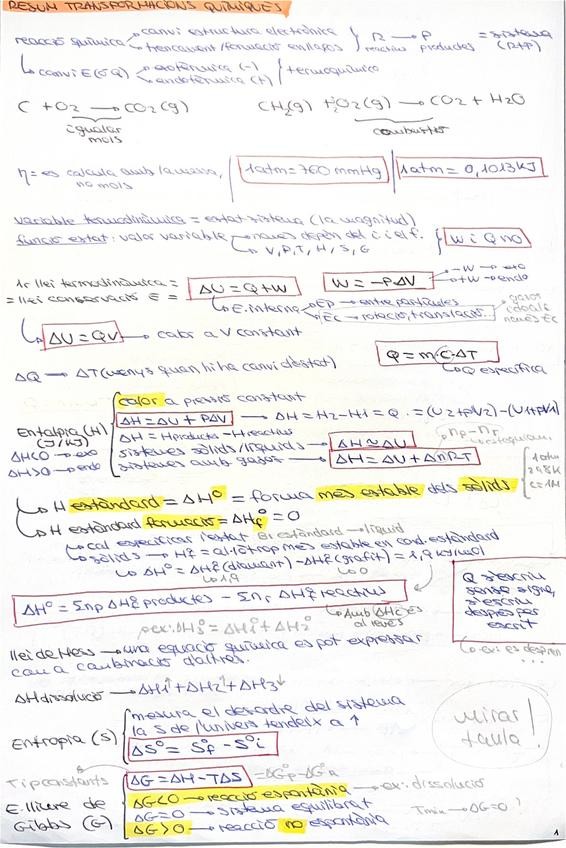 RESUM TRANSFORMACIONS QUÍMIQUES
reacció química canvi estructura electrònica
trencament/formació enllaços } R → P = sistema
reactius productes (R+P)
canvi E(ó Q) exotèrmica (-)
endotèrmica (+) } termoquímica
C + O2 → CO2 (g) CH4(g) + 2O2(g) → CO2 + H2O
igualar mols combustió
η = es calcula amb la massa, no mols
1 atm = 760 mmHg
1 atm = 0,1013 KJ
variable termodinàmica = estat sistema (la magnitud)
funció estat: valor variable només depèn del i. i el f.
V, P, T, H, S, G
W i Q no
1r llei termodinàmica =
= llei conservació E =
ΔU = Q + W
W = -PΔV
-W → exo
+W → endo
E. interna EP → entre partícules
EC → rotació, translació..
gasos ideals només Ec
ΔU = QV → calor a V constant
Q = m·C·ΔT
Q específica
ΔQ → ΔT (menys quan hi ha canvi d'estat)
Entalpia (H)
(J/KJ)
ΔH<0 → exo
ΔH>0 → endo
calor a pressió constant
ΔH = ΔU + PΔV → ΔH = H2 - H1 = Q = (U2 + PV2) - (U1 + PV1)
ΔH = Hproductes - Hreactius
sistemes sòlids/líquids → ΔH ≈ ΔU
sistemes amb gasos → ΔH = ΔU + ΔnRT
np - nr
estequiom.
1 atm
298K
c = 1M
H estàndard = ΔH° = forma més estable dels sòlids
H estàndard formació = ΔHf° = 0
cal especificar l'estat Br estàndard → líquid
sòlids → Hf° = al·lòtrop més estable en cond. estàndard
ΔH° = ΔHf° (diamant) - ΔHf° (grafit) = 1,9 kJ/mol
1,9 0
ΔH° = Σnp ΔHf° productes - Σnr ΔHf° reactius
Amb ΔHc és al revés
p.ex: ΔH3° = ΔH1° + ΔH2°
Q s'escriu sense signe, s'escriu després per escrit
ex: es desprèn ...
llei de Hess → una equació química es pot expressar
com a combinació d'altres.
ΔH dissolució → ΔH1↑ + ΔH2↑ + ΔH3↓
Entropia (S)
mesura el desordre del sistema
la S de l'univers tendeix a ↑
ΔS° = Sf° - S°i
mirar taula!
T i p constants
E. lliure de
Gibbs (G)
ΔG = ΔH - TΔS = ΔG°P - ΔG°R
ΔG<0 → reacció espontània → ex: dissolució
ΔG = 0 → sistema equilibrat
ΔG>0 → reacció no espontània
Tmin → ΔG = 0?
1